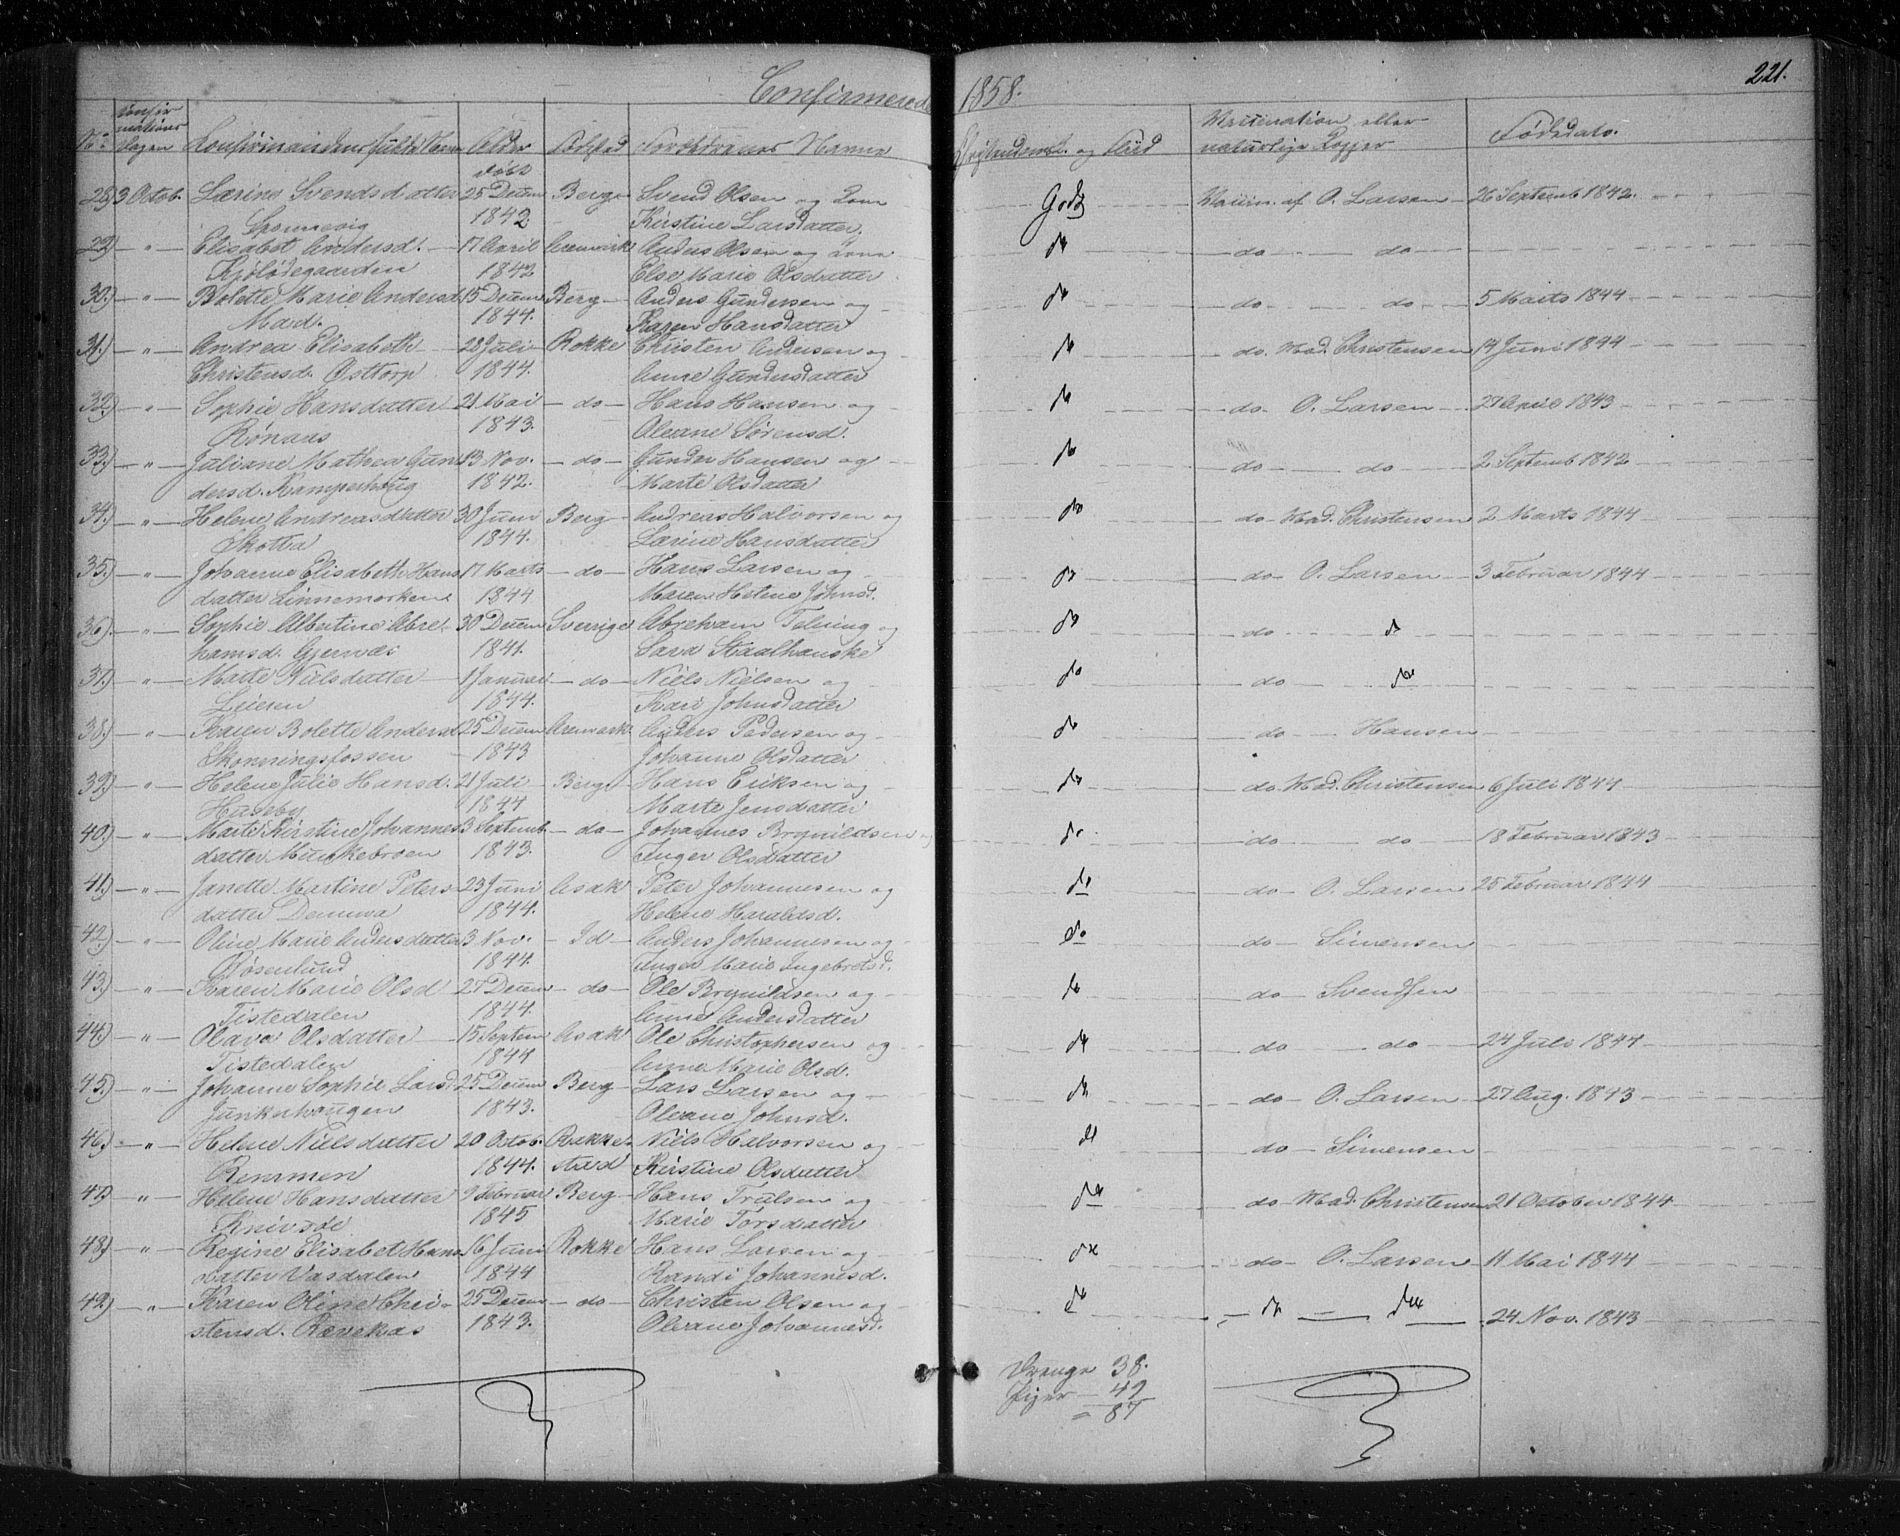 Confirmerede 1858. 221.
No Confirmations Dagen Confirmandens fulde Navn Alder født Fødested Forældrenes Navne og Flid Vaccination eller naturlige Kopper
28) 3 Octob. Larine Svendsdatter 25 Decem Berg Svend Olsen og Kone Godt Vaccin. af O. Larsen 26 Septemb 1842.
1842 Kirstine Larsdatter.
29) " Elisabet Andersd. 17 April Aremark Anders Olsen og Kone do do do
1842 Else Marie Olsdatter
30.) " Bolette Marie Andersd. 15 Decem Berg Anders Gundersen og do do do 5 Marts 1844
1844. Karen Hansdatter
31.) " Andrea Elisabeth 28 Juli Rokke Christen Andersen og do do. Mad. Christensen 14 Juni 1844
Christensd. Osttorp 1844. Anne Gundersdatter
32.) " Sophie Hansdatter 21 Mai do Hans Hansen og do do O. Larsen 27 April 1843
1843. Oleane Sørensd.
33.) " Juliane Mathea Gun 13 Nov. do Gunder Hansen og do do do 2 Septemb 1842
dersd. Kamperhoug 1842. Marte Olsdatter
34.) " Helene Andreasdatter 30 Juni Berg Andreas Halvorsen og do do Mad. Christensen 2 Marts 1844
Skotta 1844. Larine Hansdatter
35.) " Johanne Elisabeth Hans 17 Marts do Hans Larsen og do do O. Larsen 3 Februar 1844
datter Linnemarken 1844 Maren Helene Johnsd.
36.) " Sophie Albertine Abra 30 Decem Sverrige Abraham og do do do
hamsd. 1841. Sara Staalhanske
37.) " Marte Nielsdatter 1 Januar do Niels Nielsen og do do do
1844. Kari Johnsdatter
38.) " Karen Bolette Andersd 25 Decem Aremark Anders Pedersen og do do Hansen
Skonningsfossen 1843 Johanne Olsdatter
39.) " Helene Julie Hansd. 21 Juli Berg Hans Eriksen og do do Mad. Christensen 6 Juli 1844
Huseby 1844 Marte Jensdatter
40.) " Marte Kirstine Johannes 3 Septemb do Johannes Brynildsen og do do do 18 Februar 1843
datter Munkebroen 1843. Inger Olsdatter
41.) " Janette Martine Peters 23 Juni Asak Peter Johannesen og do do O. Larsen 25 Februar 1844
datter 1844. Helene Haraldsd.
42.) " Oline Marie Andersdatter 3 Nov. Id Anders Johannesen og do do Simensen
Rosenlund 1844. Inger Marie Ingebretsd.
43.) " Karen Marie Olsd 27 Decem do Ole Brynildsen og do do Svendsen
Tistedalen 1844. Anne Andersdatter
44.) " Olava Olsdatter 15 Septem Asak Ole Christophersen og do do do 24 Juli 1844
Tistedalen 1844 Anne Marie Olsd.
45.) " Johanne Sophie Larsd 25 Decem Berg Lars Larsen og do do O. Larsen 27 Aug. 1843
Junkerhaugen 1843. Oleane Johnsd.
46.) " Helene Nielsdatter 20 Octob. Rakke Niels Halvorsen og do do Simensen
Remmen 1844. stad Kirstine Olsdatter
47) " Helene Hansdatter 9 Februar Berg Hans Trulsen og do do Mad. Christensen 21 October 1844
Knivsøe 1845 Marie Torsdatter
48.) " Regine Elisabet Hans 16 Juni Rokke Hans Larsen og do do O. Larsen 11 Mai 1844
datter Vasdalen 1844 Randi Johannesd.
49.) " Karen Oline Chri- 25 Decem do Christen Olsen og do do do 24 Nov. 1843
stensd. Rævekas 1843. Oleane Johannesd.
Drenge 38.
Piger 49
= 87